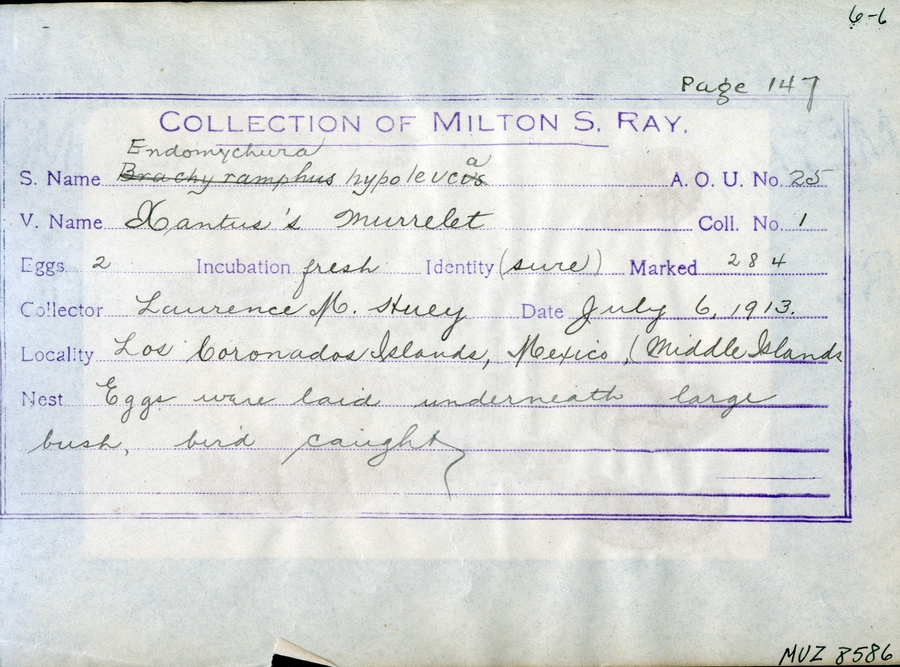 6-6
Page 147
COLLECTION OF MILTON S. RAY.
Endomychura
S. Name Brachyramphus hypoleucus a A. O. U. No. 25
V. Name Xantus's Murrelet Coll. No. 1
Eggs 2 Incubation fresh Identity (sure) Marked 284
Collector Laurence M. Huey Date July 6, 1913.
Locality Los Coronados Islands, Mexico, (Middle Islands
Nest Eggs were laid underneath large
bush, bird caught
MVZ 8586